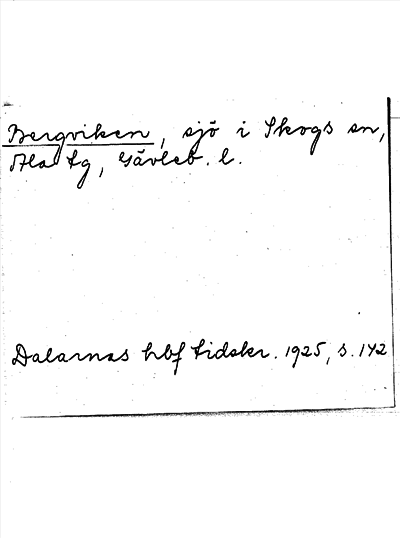 Bergviken, sjö i Skogs sn,
Ala tg, Gävleb. l.
Dalarnas hbf tidskr. 1925, s. 142